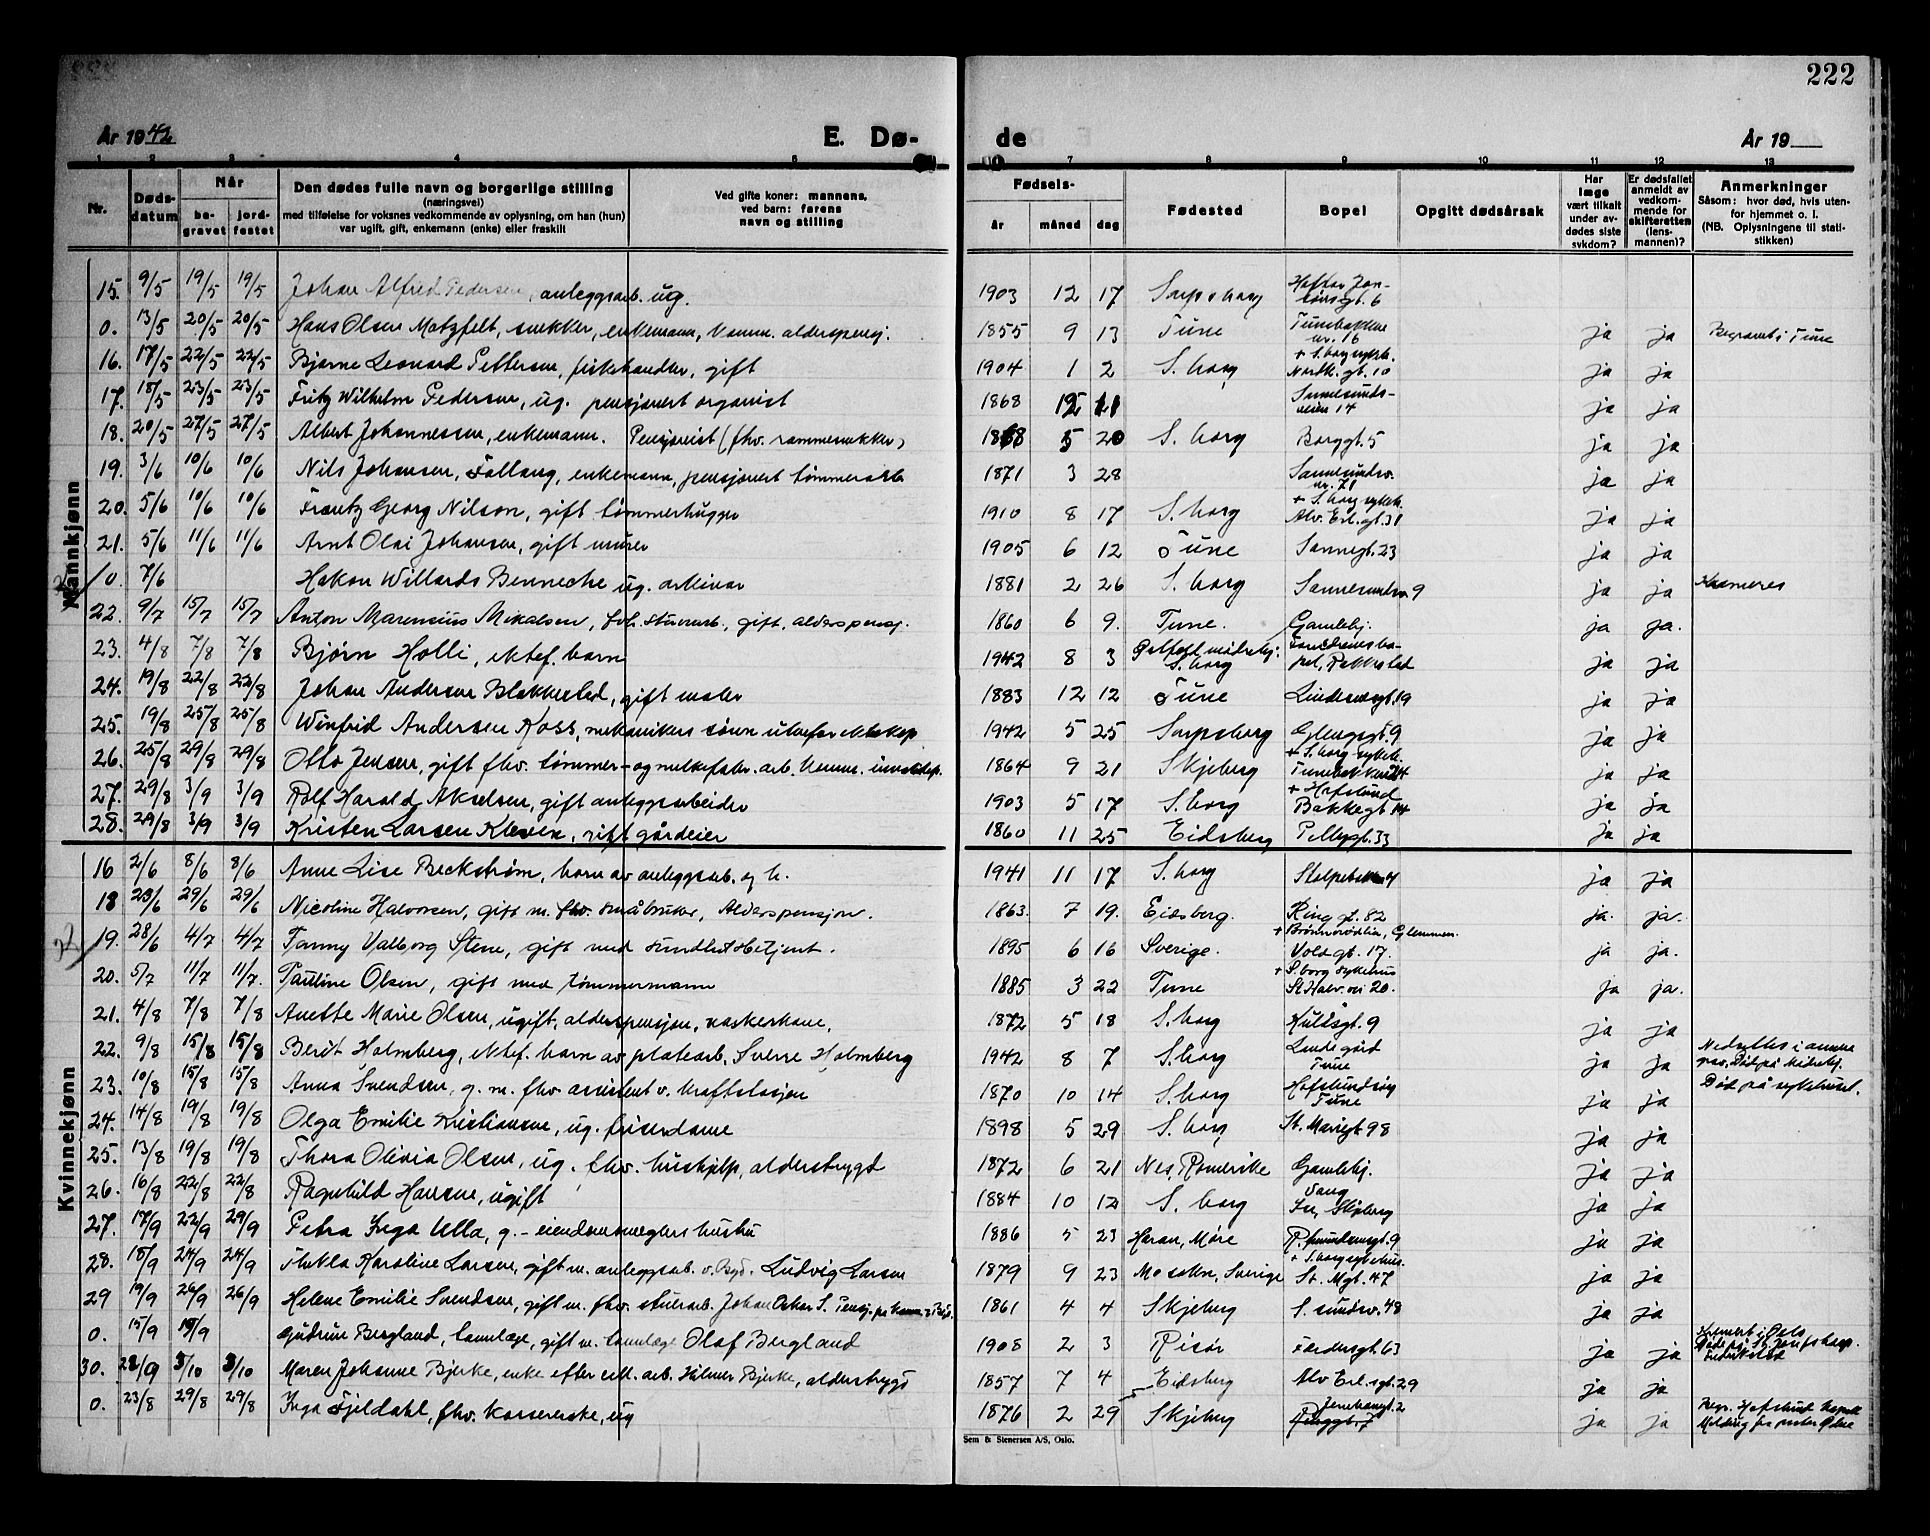 222
År 1942 E. Dø-
de År 19
1 2 3 4 5
7 8 9 10 11 12 13
Nr. Døds-datum Når be-gravet jord-festet
Den dødes fulle navn og borgerlige stilling
(næringsvei)
med tilføielse for voksnes vedkommende av oplysning, om han (hun)
var ugift, gift, enkemann (enke) eller fraskilt
Ved gifte koner: mannens,
ved barn: farens
navn og stilling
Fødsels-
år måned dag
Fødested Bopel Opgitt dødsårsak
Har læge vært tilkalt under av-dødes siste sykdom?
Er dødsfallet anmeldt av vedkom-mende for skifteretten (lens-mannen)?
Anmerkninger
Såsom: hvor død, hvis uten-
for hjemmet o. l.
(NB. Oplysningene til stati-
stikken)
Mannkjønn
15. 9/5 19/5 19/5 Johan Alfred Pedersen, anleggsarb. ug. 1903 12 17 Sarpsborg
0. 13/5 20/5 20/5 Hans Olsen Matzfelt, snekker, enkemann, komm. alderspensj. 1855 9 13 Tune Tunebakken nr. 16 ja ja Begravet i Tune
16. 17/5 22/5 22/5 Bjarne Leonard Pettersen, fiskehandler, gift 1904 1 2 S. borg + S. borg sykeh. Nordk. gt. 10 ja ja
17. 18/5 23/5 23/5 Fritz Wilhelm Pedersen, ug. pensjonert organist 1868 Sannesunds-veien 14 ja ja
18. 20/5 27/5 27/5 Albert Johannessen, enkemann. Pensjonist (fhv. rammesnekker) 1868 5 20 S. borg Borggt. 5 ja ja
19. 3/6 10/6 10/6 Nils Johansen, Fallang, enkemann, pensjonert tømmerarb 1871 3 28 Sannesundsv. nr. 71 ja ja
20. 5/6 10/6 10/6 Frantz Georg Nilson, gift tømmerhugger 1910 8 17 S. borg + S. borg sykeh. Alv. Erl. gt. 31 ja ja
21. 5/6 11/6 11/6 Arnt Olai Johansen, gift murer 1905 6 12 Tune Sannegt. 23 ja ja
0. 7/6 Hakon Willards Benneche ug. arkivar 1881 2 26 S. borg Sannesundsv 9 ja ja Kremeres
22. 9/7 15/7 15/7 Anton Marensius Mikalsen, fvh. stuerarb., gift, alderspensj. 1860 6 9. Tune. Gamlehj. ja ja.
23. 4/8 7/8 7/8 Bjørn Holli, ektef. barn 1942 8 3 Østfold mødrehj. S. borg Rakkestad ja ja
24. 19/8 22/8 22/8 Johan Andersen Blakkestad, gift maler 1883 12 12 Tune Lindemsgt. 19 ja ja
25. 19/8 25/8 25/8 Winfrid Andersen Ross, mekanikers sønn utenfor ekteskap 1942 5 25 Sarpsborg Glengsgt. 9 ja ja
26. 25/8 29/8 29/8 Otto Jensen, gift fhv. tømmer- og melkefabr. arb. komm. 1864 9 21 Skjeberg + S. borg sykeh. ja ja
27. 29/8 3/9 3/9 Rolf Harald Akselsen, gift anleggsarbeider 1903 5 17 S. borg + Hafslund Bakkegt 14 ja ja
28. 29/8 3/9 3/9 Kristen Larsen Kleven, gift gårdeier 1860 11 25 Eidsberg Pellygt. 33 ja ja
Kvinnekjønn
16 2/6 8/6 8/6 Anne Lise Beckstrøm, barn av anleggsarb. og h. 1941 11 17 S. borg ja ja
18 23/6 29/6 29/6 Nicoline Halvorsen, gift m. fhv. småbruker, Alderspensjon. 1863. 7 19. Eidsberg. Ring gt. 82 ja. ja.
19. 28/6 4/7 4/7 Fanny Valborg Stene, gift med sundhetsbetjent. 1895 6 16 Sverige. Glemmen. Vold gt. 17. ja ja.
20. 5/7 11/7 11/7. Pauline Olsen, gift med tømmermann 1885 3 22 Tune + S. borg sykehus St. Halv. vei 20. ja ja.
21. 4/8 7/8 7/8 Anette Marie Olsen, ugift, alderspensjon, vaskekone, 1872 5 18 S. borg Kuldsgt. 9 ja ja
22. 9/8 15/8 15/8 Berit Holmberg, ektef. barn av platearb. Sverre Holmberg 1942 8 7 S. borg Lande gård Tune ja ja Nedsettes i annen grav, Død på Mødrehj.
23. 10/8 15/8 15/8 Anna Svendsen, g. m. fhv. assistent v. kraftstasjon 1870 10 14 S. borg Hafslundsøy Tune ja ja Død på sykehuset.
24. 14/8 19/8 19/8 Olga Emilie Kristiansen, ug. friserdame 1898 5 29 S. borg St. Mariegt. 98 ja ja
25. 13/8 19/8 19/8 Thora Olivia Olsen, ug. fhv. hushjelp, alderstrygd 1872 6 21 Nes, Romerike Gamlehj. ja ja
26. 16/8 22/8 22/8 Ragnhild Hansen, ugift 1884 10 12 S. borg Skjeberg ja ja
27. 17/9 22/9 29/9 Petra Inga Ulla, g. - eiendomsmeglers hustru 1886 5 23 Haram, Møre ja ja
28. 18/9 24/9 24/9 Thekla Karoline Larsen, gift m. anleggsarb. v. Byd. Ludvig Larsen 1879 9 23 Sverige + S. borg sykehus. St. Mgt. 47 ja ja
29 19/9 26/9 26/9 Helene Emilie Svendsen, gift m. fhv. stuerarb. Johan Oskar S. 1861 4 4 Skjeberg S. sundsv. 48 ja ja
0. 15/9 19/9 Gudrun Bergland, tannlæge, gift m. tannlæge Olaf Bergland 1908 2 3 Risør Færdersgt. 63 ja ja Kremert i Oslo Døde på St. Josefs hosp. Fredrikstad
30. 28/9 3/10 3/10 Maren Johanne Bjerke, enke efter cell. arb. Hilmer Bjerke, alderstrygd 1857 7 4 Eidsberg Alv Erl. sgt. 29 ja ja
0. 23/8 29/8 29/8 Inga Fjeldahl, fhv. kassererske, ug 1876 2 29 Skjeberg ja ja Begr. Hafslund kapell Melding fra
Sem & Stenersen A/S, Oslo.